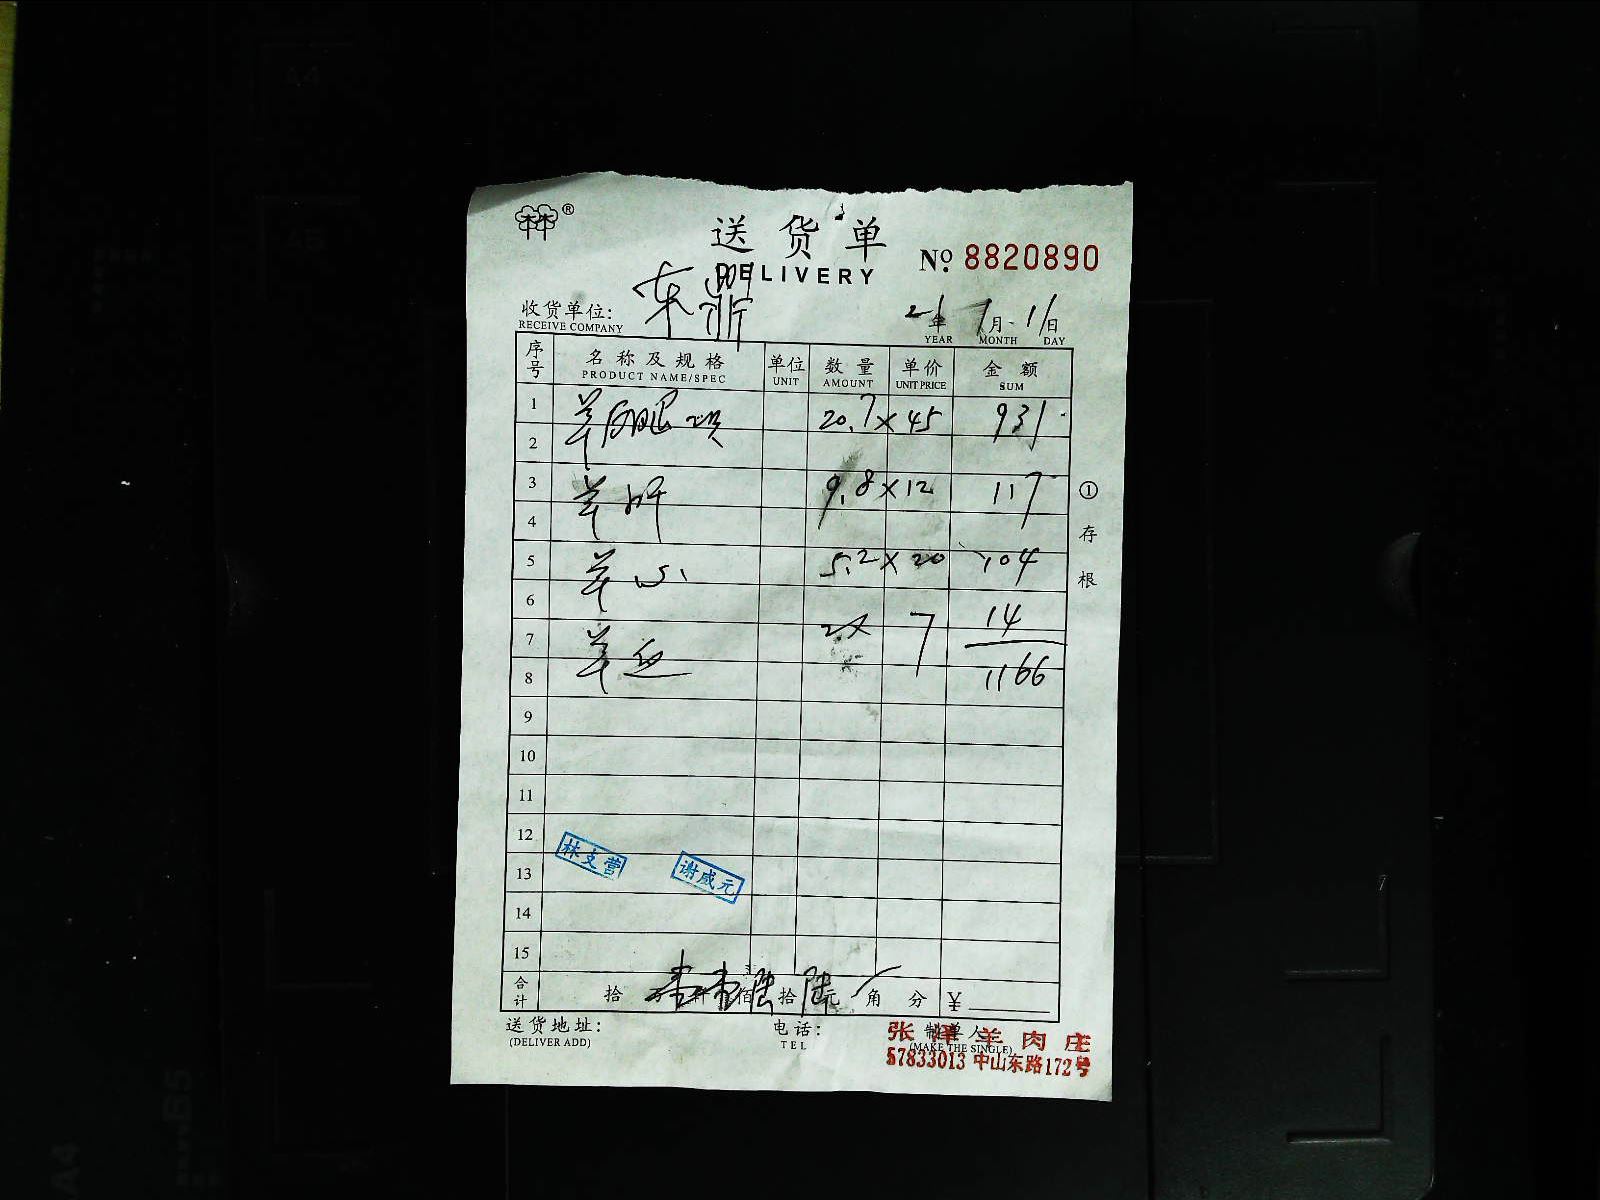 ®
送货单
DELIVERY
No. 8820890
收货单位:
RECEIVE COMPANY
21年 1月 11日
YEAR MONTH DAY
序号 名称及规格 单位 数量 单价 金额
PRODUCT NAME/SPEC UNIT AMOUNT UNIT PRICE SUM
1 羊后腿 20.7 × 45 931
2
3 羊肝 9.8 × 12 117
4
5 羊心 5.2 × 20 104
6 14
7 羊血 2× 7
8 1166
9
10
11
12
13
14
15
林支营
谢威元
合计 拾 万 仟 佰 拾 元 角 分 ¥
① 存根
送货地址:
(DELIVER ADD)
电话:
TEL
制单人
(MAKE THE SINGLE)
张泽羊肉庄
57833013 中山东路172号
A4